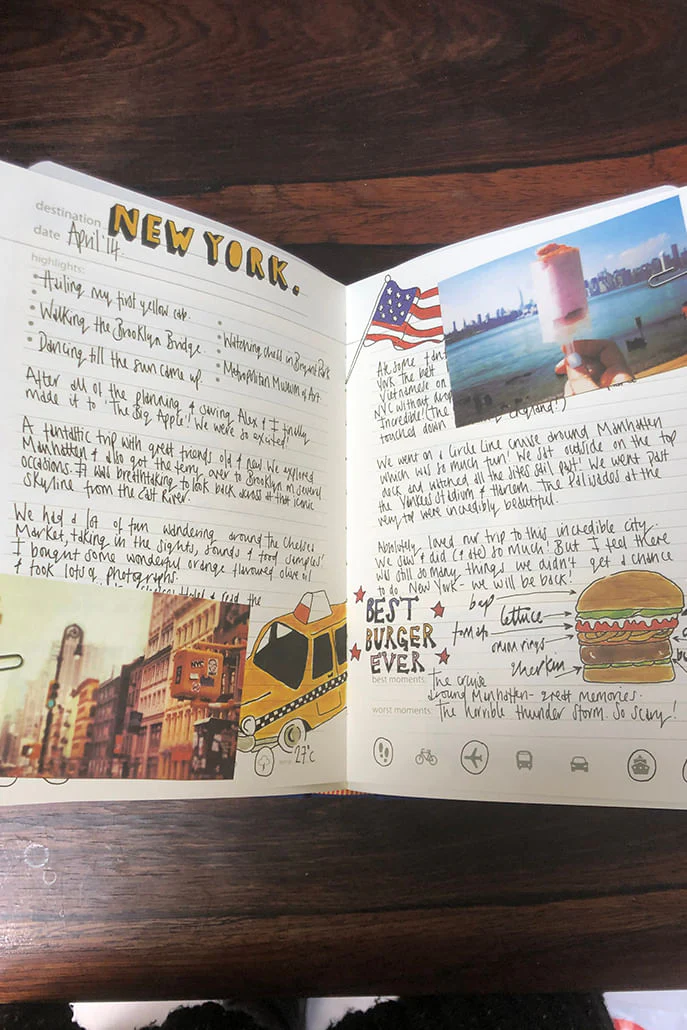 destination NEW YORK.
date April '14
highlights:
• Hailing my first yellow cab.
• Walking the Brooklyn Bridge.
• Dancing till the sun came up.
• Watching chess in Bryant Park
• Metropolitan Museum of Art.
After all of the planning & saving Alex & I finally
made it to 'The Big Apple'! We were so excited!
A fantastic trip with great friends old & new. We explored
Manhattan & also got the ferry over to Brooklyn on several
occasions. It was breathtaking to look back across at that iconic
skyline from the East River.
We had a lot of fun wandering around the Chelsea
Market, taking in the sights, sounds & food samples!
I bought some wonderful orange flavoured olive oil
& took lots of photographs.
Hotel & the
NYC
27°C
Ate some
York. The best
Vietnamese on
NYC without
Incredible! (The
touched down England!)
We went on a Circle Line Cruise around Manhattan
which was so much fun! We sat outside on the top
deck and watched all the sites sail past! We went past
the Yankees Stadium & Harlem. The Palisades at the
very top were incredibly beautiful.
Absolutely loved our trip to this incredible city.
We saw & did (& ate) so much! But I feel there
was still so many things we didn't get a chance
to do. New York - we will be back!
BEST
BURGER
EVER
bap
lettuce
tomato
onion rings
gherkin
best moments: The cruise
around Manhattan - great memories.
worst moments: The horrible thunder storm. So scary!